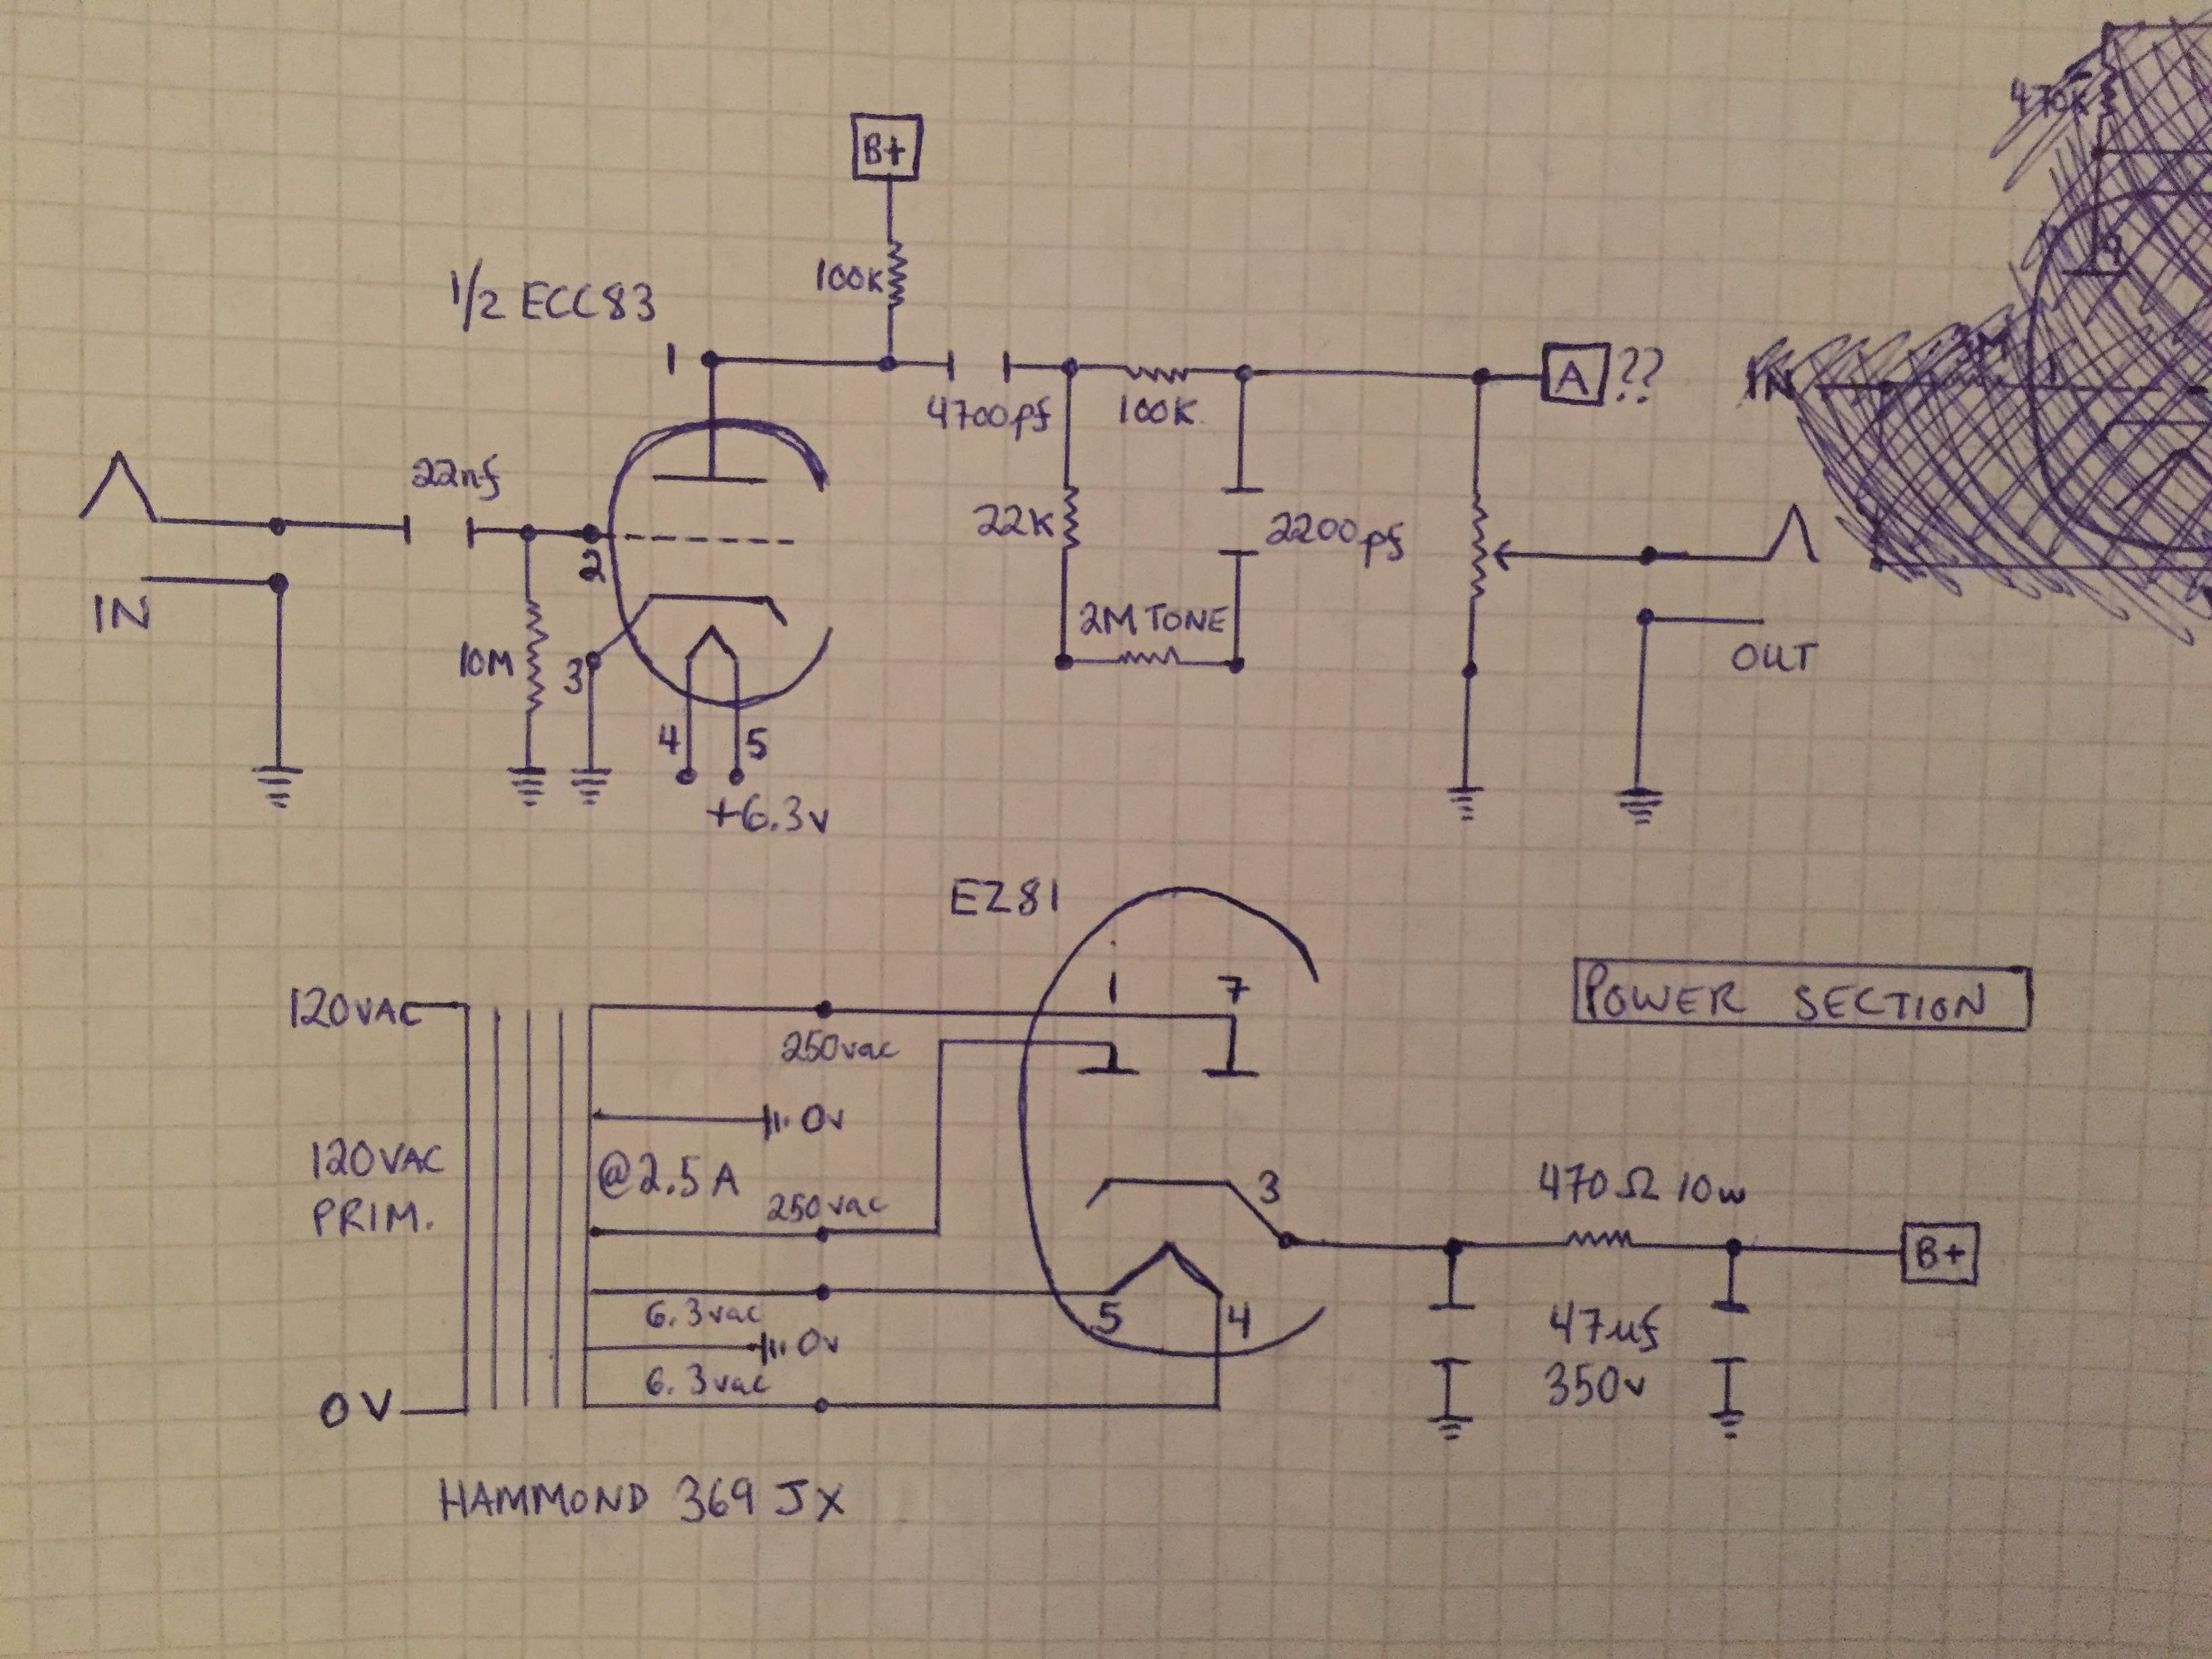 B+
470K
100K
1/2 ECC83
1
A ??
4700pf
100K
IN
22nf
2
22K
2200pf
IN
10M
3
2M TONE
OUT
4
5
+6.3v
EZ81
1
7
120VAC
250vac
POWER SECTION
0v
120VAC
PRIM.
@2.5A
250vac
3
470Ω 10w
B+
6.3vac
5
4
0v
47uf
350v
6.3vac
0V
HAMMOND 369JX